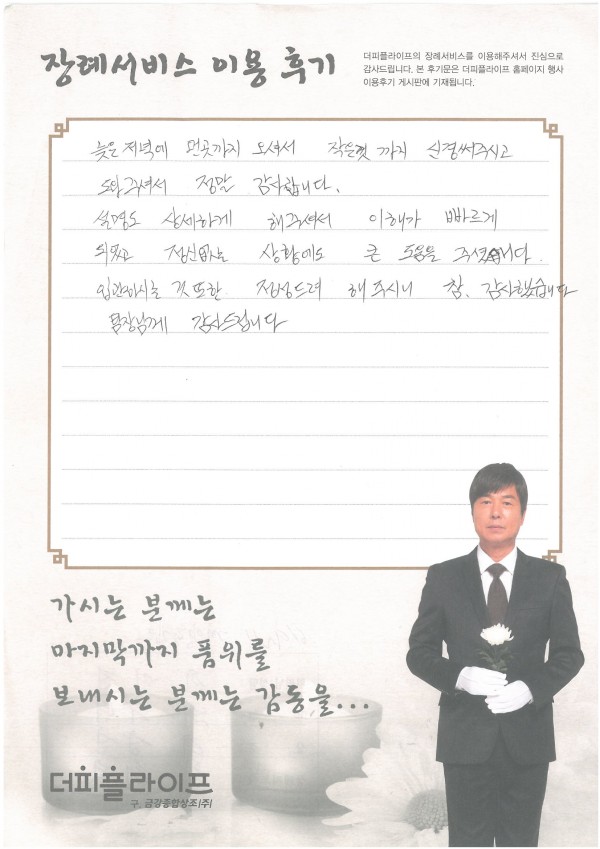 장례서비스 이용 후기
더피플라이프의 장례서비스를 이용해주셔서 진심으로
감사드립니다. 본 후기문은 더피플라이프 홈페이지 행사
이용후기 게시판에 기재됩니다.
늦은 저녁에 먼곳까지 오셔서 작은것 까지 신경써주시고
도와주셔서 정말 감사합니다.
설명도 상세하게 해주셔서 이해가 빠르게
되었고 정신없는 상황에도 큰 도움을 주셨습니다.
입관하시는 것 또한 정성드려 해주시니 참. 감사했습니다
감사드립니다
가시는 분께는
마지막까지 품위를
보내시는 분께는 감동을...
더피플라이프
구. 금강종합상조(주)